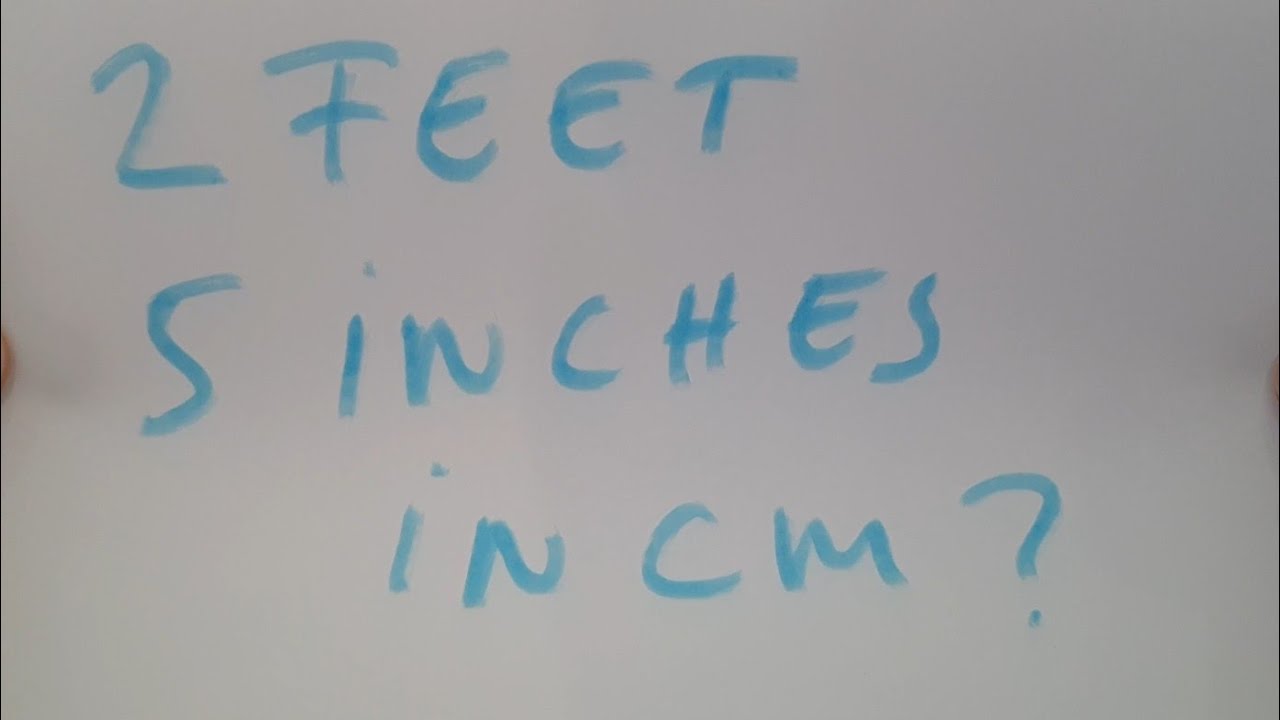 2 FEET
5 iNCHES
iN CM?